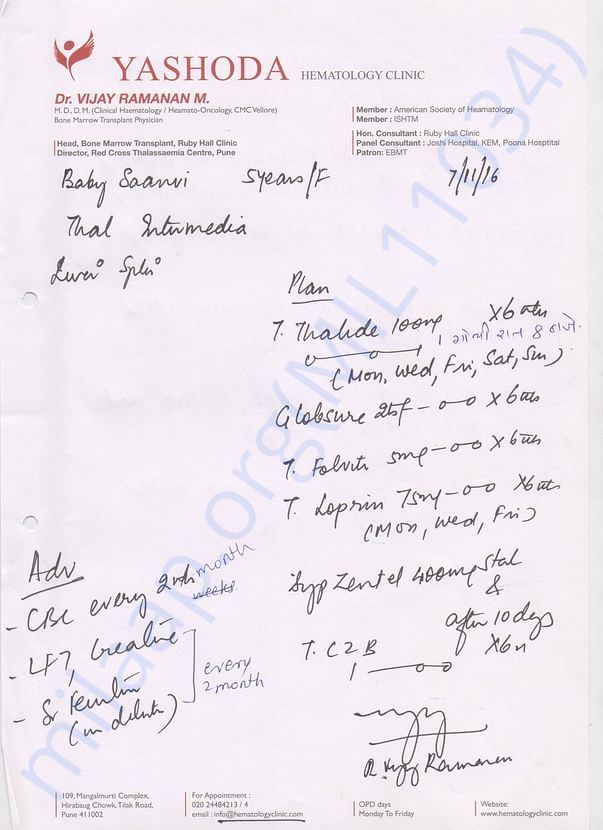 YASHODA HEMATOLOGY CLINIC
Dr. VIJAY RAMANAN M.
M. D., D. M. (Clinical Haematology / Heamato-Oncology, CMC Vellore)
Bone Marrow Transplant Physician
Head, Bone Marrow Transplant, Ruby Hall Clinic
Director, Red Cross Thalassaemia Centre, Pune
Member : American Society of Heamatology
Member : ISHTM
Hon. Consultant : Ruby Hall Clinic
Panel Consultant : Joshi Hospital, KEM, Poona Hosptital
Patron: EBMT
Baby Saanvi 5years/F 7/11/16
Thal Intermedia
Liver° Spln°
Plan
T. Thalide 100mg X6
(Mon, Wed, Fri, Sat, Sun)
Globsure - o-o X6
T. Folvite 5mg - o-o X6
T. Loprin 75mg - o-o X6
(Mon, Wed, Fri)
Syp Zentel 400mg Stat
&
after 10 days
T. C2B X6
1
Adv
- CBC every 2 month
- LFT, Creatine
- Sr Ferritin
(in dilute)
every
2 month
Dr. Vijay Ramanan
109, Mangalmurti Complex,
Hirabaug Chowk, Tilak Road,
Pune 411002
For Appointment :
020 24484213 / 4
email : info@hematologyclinic.com
OPD days
Monday To Friday
Website:
www.hematologyclinic.com
milaap.org(MIL11034)